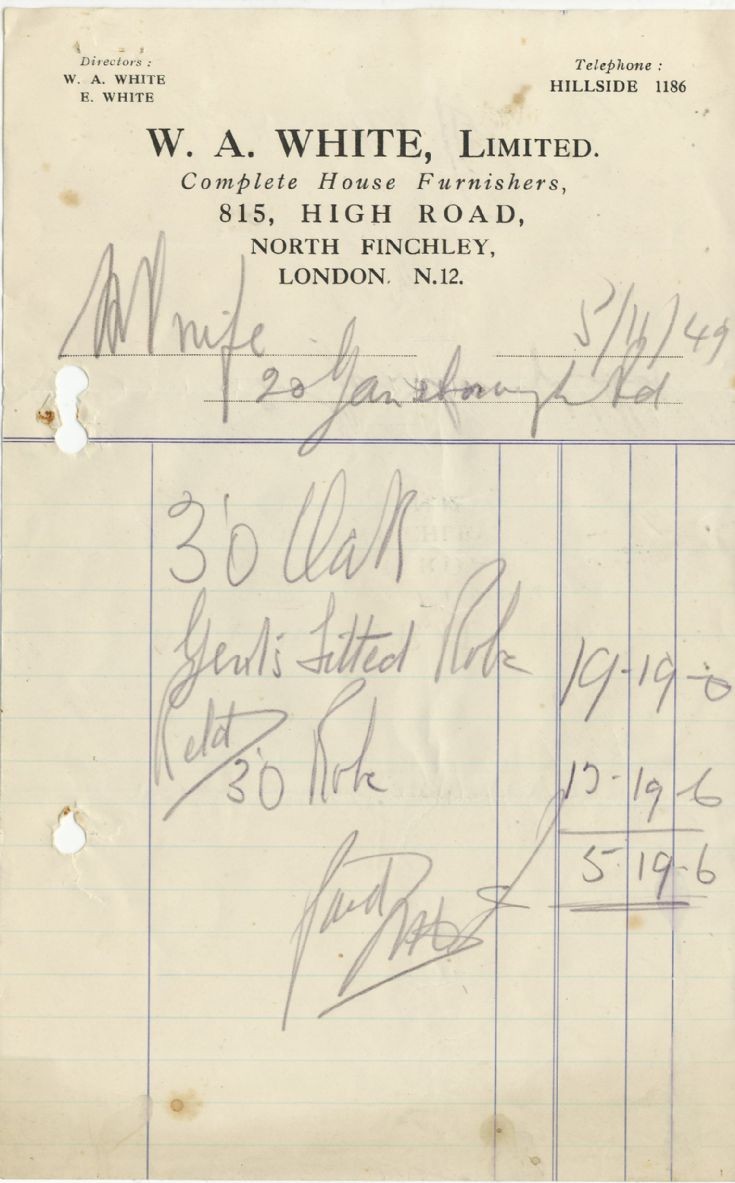 Directors :
W. A. WHITE
E. WHITE
Telephone :
HILLSIDE 1186
W. A. WHITE, LIMITED.
Complete House Furnishers,
815, HIGH ROAD,
NORTH FINCHLEY,
LONDON. N.12.
Knife 5/4/49
20 Gainsborough Rd
3'0 Oak
Gent's Fitted Robe 19-19-0
3'0 Robe 13-19-6
5-19-6
Paid